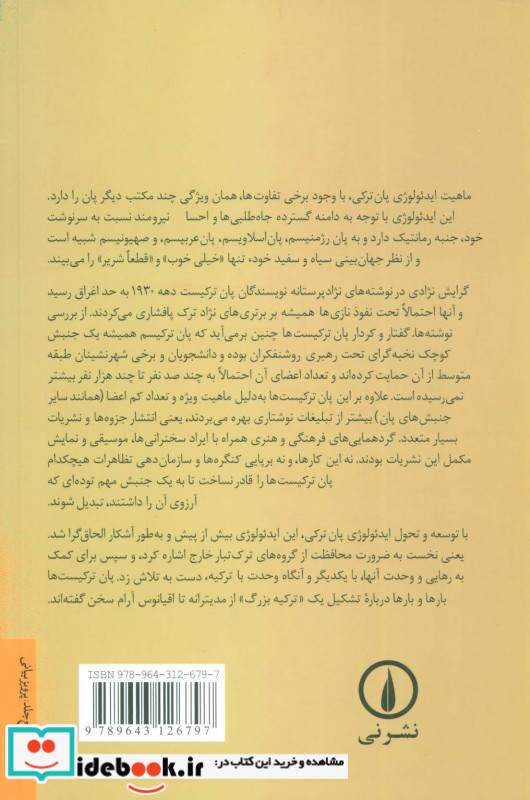 ماهیت ایدئولوژی پان‌ترکی، با وجود برخی تفاوت‌ها، همان ویژگی چند مکتب دیگر پان را دارد.
این ایدئولوژی با توجه به دامنه گسترده جاه‌طلبی‌ها و احسا نیرومند نسبت به سرنوشت
خود، جنبه رمانتیک دارد و به پان رژمنیسم، پان‌اسلاویسم، پان‌عربیسم، و صهیونیسم شبیه است
و از نظر جهان‌بینی سیاه و سفید خود، تنها «خیلی خوب» و «قطعاً شریر» را می‌بیند.
گرایش نژادی در نوشته‌های نژادپرستانه نویسندگان پان ترکیست دهه ۱۹۳۰ به حد اغراق رسید
و آنها احتمالاً تحت نفوذ نازی‌ها همیشه بر برتری‌های نژاد ترک پافشاری می‌کردند. از بررسی
نوشته‌ها، گفتار و کردار پان ترکیست‌ها چنین برمی‌آید که پان ترکیسم همیشه یک جنبش
کوچک نخبه‌گرای تحت رهبری روشنفکران بوده و دانشجویان و برخی شهرنشینان طبقه
متوسط از آن حمایت کرده‌اند و تعداد اعضای آن احتمالاً به چند صد نفر تا چند هزار نفر بیشتر
نمی‌رسیده است. علاوه بر این پان ترکیست‌ها به‌دلیل ماهیت ویژه و تعداد کم اعضا (همانند سایر
جنبش‌های پان) بیشتر از تبلیغات نوشتاری بهره می‌بردند، یعنی انتشار جزوه‌ها و نشریات
بسیار متعدد. گردهمایی‌های فرهنگی و هنری همراه با ایراد سخنرانی‌ها، موسیقی و نمایش
مکمل این نشریات بودند. نه این کارها، و نه برپایی کنگره‌ها و سازمان‌دهی تظاهرات هیچکدام
پان ترکیست‌ها را قادر نساخت تا به یک جنبش مهم توده‌ای که
آرزوی آن را داشتند، تبدیل شوند.
با توسعه و تحول ایدئولوژی پان ترکی، این ایدئولوژی بیش از پیش و به‌طور آشکار الحاق‌گرا شد.
یعنی نخست به ضرورت محافظت از گروه‌های ترک‌تبار خارج اشاره کرد، و سپس برای کمک
به رهایی و وحدت آنها، با یکدیگر و آنگاه وحدت با ترکیه، دست به تلاش زد. پان ترکیست‌ها
بارها و بارها دربارهٔ تشکیل یک «ترکیه بزرگ» از مدیترانه تا اقیانوس آرام سخن گفته‌اند.
ISBN 978-964-312-679-7
9 789643 126797
نشرنی
جلد: پرویز بیانی
idebook.ir
مشاهده و خرید این کتاب در: